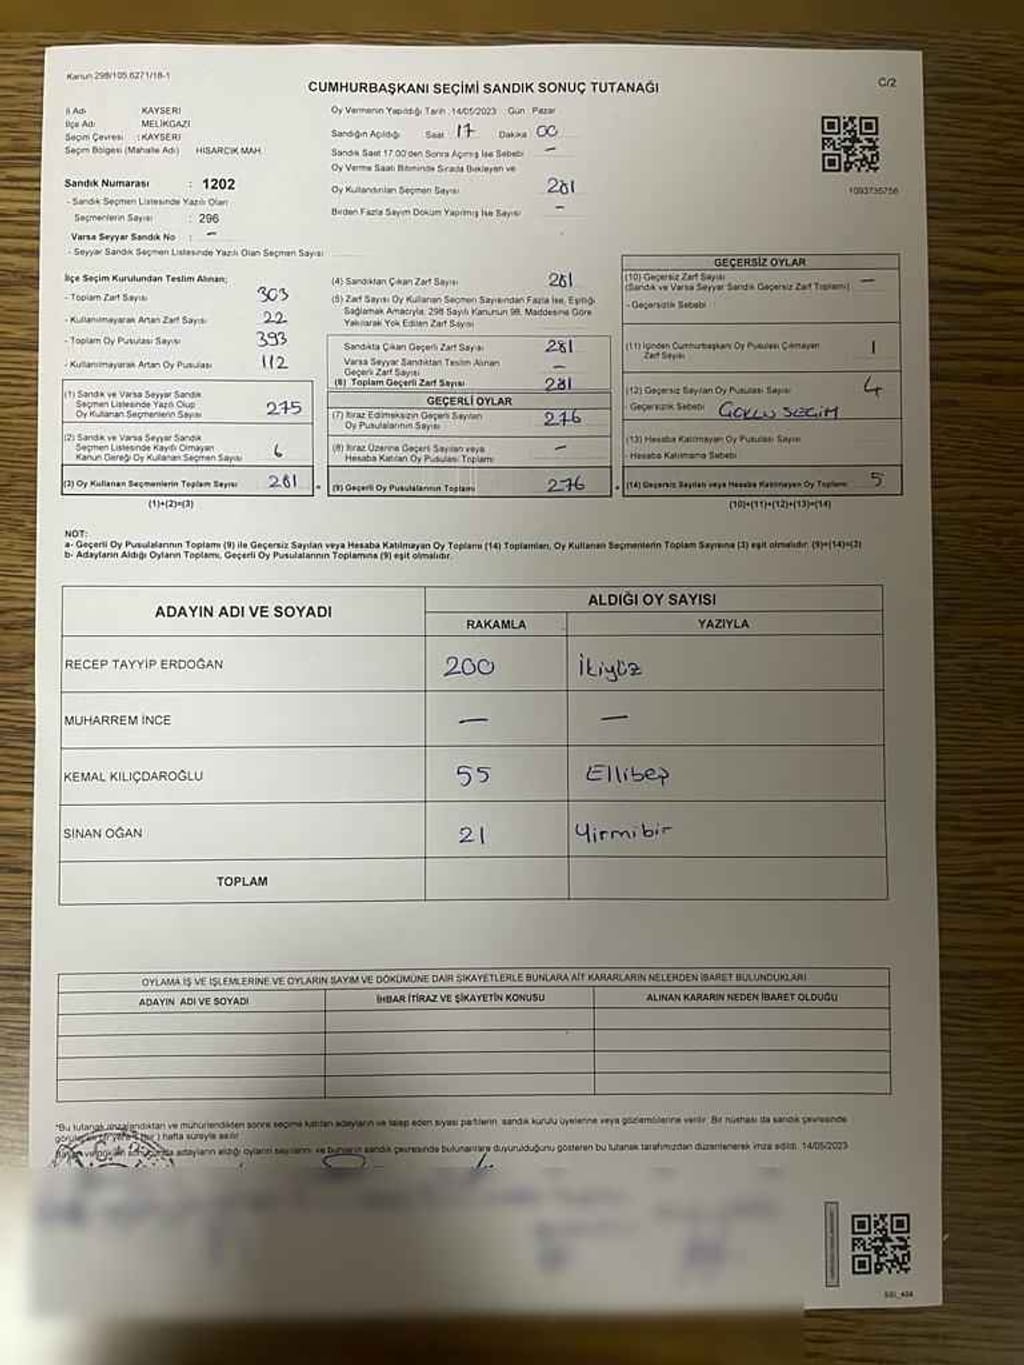 Kanun 298/105,6271/18-1
CUMHURBAŞKANI SEÇİMİ SANDIK SONUÇ TUTANAĞI
C/2
İl Adı KAYSERİ
İlçe Adı MELİKGAZİ
Seçim Çevresi : KAYSERİ
Seçim Bölgesi (Mahalle Adı) HISARCIK MAH.
Sandık Numarası : 1202
- Sandık Seçmen Listesinde Yazılı Olan
Seçmenlerin Sayısı : 296
Varsa Seyyar Sandık No : –
- Seyyar Sandık Seçmen Listesinde Yazılı Olan Seçmen Sayısı
Oy Vermenin Yapıldığı Tarih : 14/05/2023 Gün : Pazar
Sandığın Açıldığı Saat 17 Dakika 00
Sandık Saat 17.00'den Sonra Açılmış İse Sebebi –
Oy Verme Saati Bitiminde Sırada Bekleyen ve
Oy Kullandırılan Seçmen Sayısı 281
Birden Fazla Sayım Döküm Yapılmış İse Sayısı –
1093735756
İlçe Seçim Kurulundan Teslim Alınan;
- Toplam Zarf Sayısı 303
- Kullanılmayarak Artan Zarf Sayısı 22
- Toplam Oy Pusulası Sayısı 393
- Kullanılmayarak Artan Oy Pusulası 112
(1) Sandık ve Varsa Seyyar Sandık
Seçmen Listesinde Yazılı Olup
Oy Kullanan Seçmenlerin Sayısı 275
(2) Sandık ve Varsa Seyyar Sandık
Seçmen Listesinde Kaydı Olmayan
Kanun Gereği Oy Kullanan Seçmen Sayısı 6
(3) Oy Kullanan Seçmenlerin Toplam Sayısı 281
(1)+(2)=(3)
(4) Sandıktan Çıkan Zarf Sayısı 281
(5) Zarf Sayısı Oy Kullanan Seçmen Sayısından Fazla İse, Eşitliği
Sağlamak Amacıyla, 298 Sayılı Kanunun 98. Maddesine Göre
Yakılarak Yok Edilen Zarf Sayısı
Sandıkta Çıkan Geçerli Zarf Sayısı 281
Varsa Seyyar Sandıktan Teslim Alınan
Geçerli Zarf Sayısı –
(6) Toplam Geçerli Zarf Sayısı 281
GEÇERLİ OYLAR
(7) İtiraz Edilmeksizin Geçerli Sayılan
Oy Pusulalarının Sayısı 276
(8) İtiraz Üzerine Geçerli Sayılan veya
Hesaba Katılan Oy Pusulası Toplamı –
(9) Geçerli Oy Pusulalarının Toplamı 276
GEÇERSİZ OYLAR
(10) Geçersiz Zarf Sayısı
(Sandık ve Varsa Seyyar Sandık Geçersiz Zarf Toplamı) –
- Geçersizlik Sebebi
(11) İçinden Cumhurbaşkanı Oy Pusulası Çıkmayan
Zarf Sayısı 1
(12) Geçersiz Sayılan Oy Pusulası Sayısı 4
- Geçersizlik Sebebi ÇOKLU SEÇİM
(13) Hesaba Katılmayan Oy Pusulası Sayısı
- Hesaba Katılmama Sebebi
(14) Geçersiz Sayılan veya Hesaba Katılmayan Oy Toplamı 5
(10)+(11)+(12)+(13)=(14)
NOT:
a- Geçerli Oy Pusulalarının Toplamı (9) ile Geçersiz Sayılan veya Hesaba Katılmayan Oy Toplamı (14) Toplamları, Oy Kullanan Seçmenlerin Toplam Sayısına (3) eşit olmalıdır. (9)+(14)=(3)
b- Adayların Aldığı Oyların Toplamı, Geçerli Oy Pusulalarının Toplamına (9) eşit olmalıdır.
ADAYIN ADI VE SOYADI ALDIĞI OY SAYISI
RAKAMLA YAZIYLA
RECEP TAYYİP ERDOĞAN 200 İkiyüz
MUHARREM İNCE – –
KEMAL KILIÇDAROĞLU 55 Ellibeş
SİNAN OĞAN 21 Yirmibir
TOPLAM
OYLAMA İŞ VE İŞLEMLERİNE VE OYLARIN SAYIM VE DÖKÜMÜNE DAİR ŞİKAYETLERLE BUNLARA AİT KARARLARIN NELERDEN İBARET BULUNDUKLARI
ADAYIN ADI VE SOYADI İHBAR İTİRAZ VE ŞİKAYETİN KONUSU ALINAN KARARIN NEDEN İBARET OLDUĞU
*Bu tutanak imzalandıktan ve mühürlendikten sonra seçime katılan adayların ve talep eden siyasi partilerin, sandık kurulu üyelerine veya gözlemcilerine verilir. Bir nüshası da sandık çevresinde
hafta süreyle asılır
adayların aldığı oyların sayılarını ve bunların sandık çevresinde bulunanlara duyurulduğunu gösteren bu tutanak tarafımızdan düzenlenerek imza edildi. 14/05/2023